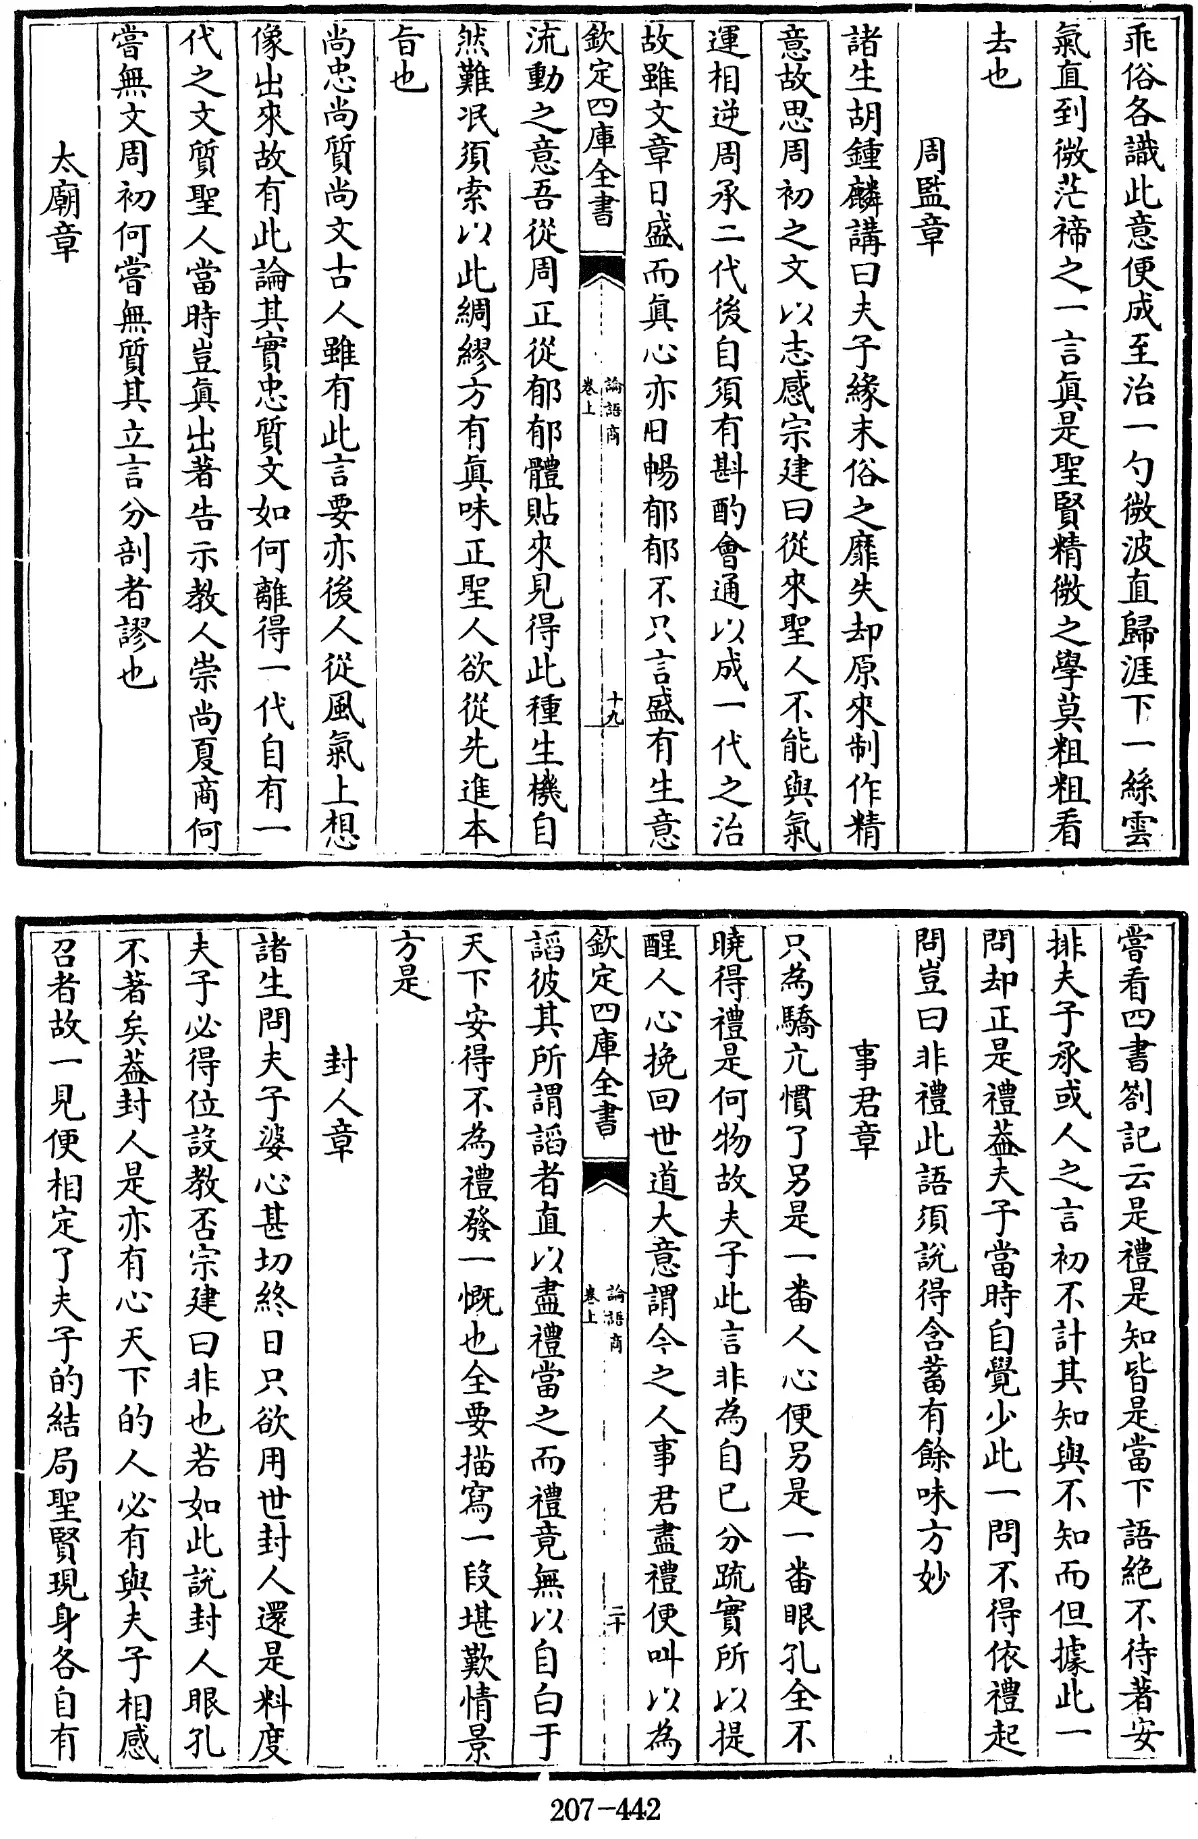 乖俗各識此意便成至治一勺微波直歸涯下一絲雲
氣直到微茫禘之一言眞是聖賢精微之學莫粗粗看
去也
周監章
諸生胡鍾麟講曰夫子緣末俗之靡失却原來制作精
意故思周初之文以志感宗建曰從來聖人不能與氣
運相逆周承二代後自須有斟酌會通以成一代之治
故雖文章日盛而眞心亦日暢郁郁不只言盛有生意
欽定四庫全書
論語商
卷上
十九
流動之意吾從周正從郁郁體貼來見得此種生機自
然難泯須索以此綢繆方有眞味正聖人欲從先進本
旨也
尚忠尚質尚文古人雖有此言要亦後人從風氣上想
像出來故有此論其實忠質文如何離得一代自有一
代之文質聖人當時豈眞出著告示教人崇尚夏商何
嘗無文周初何嘗無質其立言分剖者謬也
太廟章
嘗看四書劄記云是禮是知皆是當下語絕不待著安
排夫子承或人之言初不計其知與不知而但據此一
問却正是禮葢夫子當時自覺少此一問不得依禮起
問豈曰非禮此語須說得含蓄有餘味方妙
事君章
只為驕亢慣了另是一番人心便另是一番眼孔全不
曉得禮是何物故夫子此言非為自已分疏實所以提
醒人心挽回世道大意謂今之人事君盡禮便叫以為
欽定四庫全書
論語商
卷上
二十
諂彼其所謂諂者直以盡禮當之而禮竟無以自白于
天下安得不為禮發一慨也全要描寫一段堪歎情景
方是
封人章
諸生問夫子婆心甚切終日只欲用世封人還是料度
夫子必得位設教否宗建曰非也若如此說封人眼孔
不著矣葢封人是亦有心天下的人必有與夫子相感
召者故一見便相定了夫子的結局聖賢現身各自有
207-442